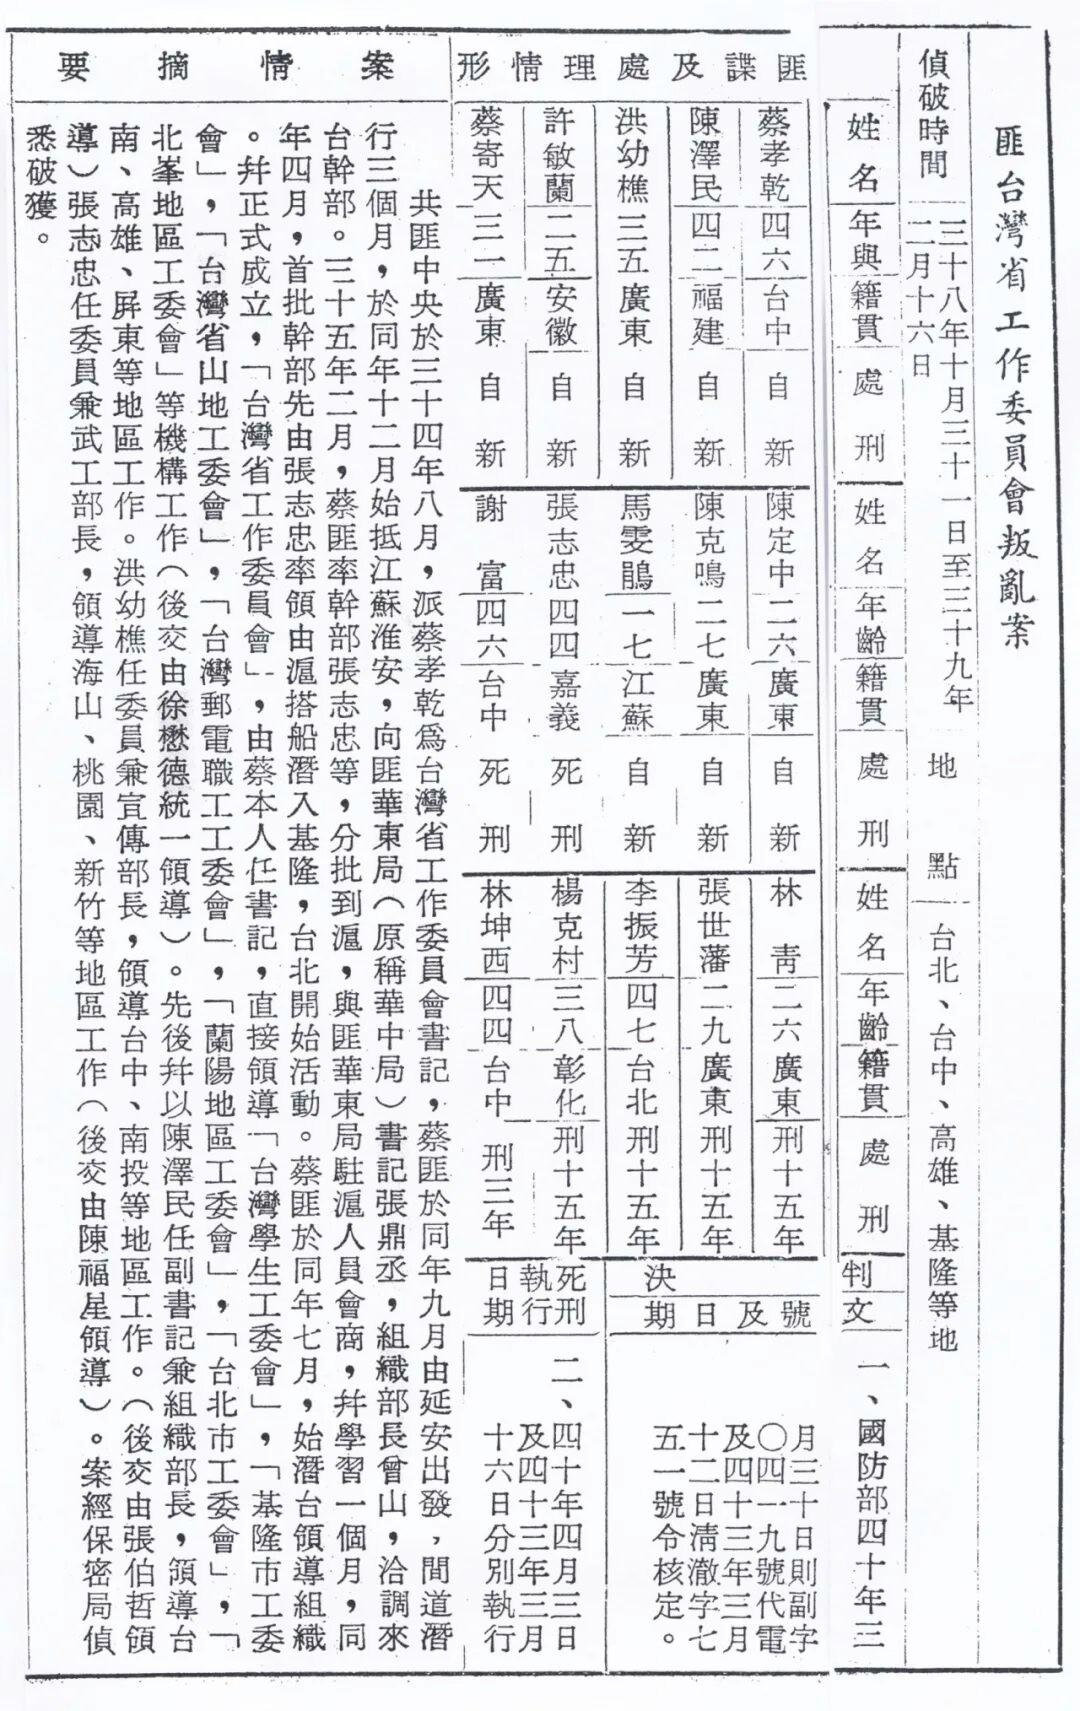 匪台灣省工作委員會叛亂案
偵破時間
三十八年十月三十一日至三十九年
二月十六日
地點
台北、台中、高雄、基隆等地
姓名
年與
籍貫
處刑
姓名
年齡
籍貫
處刑
姓名
年齡
籍貫
處刑
判文
一、國防部四十年三
匪諜及處理情形
蔡孝乾 四六 台中 自新
陳定中 二六 廣東 自新
林青 二六 廣東 刑十五年
陳澤民 四二 福建 自新
陳克鳴 二七 廣東 自新
張世藩 二九 廣東 刑十五年
洪幼樵 三五 廣東 自新
馬雯鵑 一七 江蘇 自新
李振芳 四七 台北 刑十五年
許敏蘭 二五 安徽 自新
張志忠 四四 嘉義 死刑
楊克村 三八 彰化 刑十五年
蔡寄天 三一 廣東 自新
謝富 四六 台中 死刑
林坤西 四四 台中 刑三年
決
號及日期
月三十日則副字
〇四一九號代電
及四十三年三月
十二日清澈字七
五一號令核定。
死刑
執行
日期
二、四十年四月三日
及四十三年三月
十六日分別執行
案情摘要
共匪中央於三十四年八月，派蔡孝乾爲台灣省工作委員會書記，蔡匪於同年九月由延安出發，間道潛
行三個月，於同年十二月始抵江蘇淮安，向匪華東局（原稱華中局）書記張鼎丞，組織部長曾山，洽調來
台幹部。三十五年二月，蔡匪率幹部張志忠等，分批到滬，與匪華東局駐滬人員會商，幷學習一個月，同
年四月，首批幹部先由張志忠率領由滬搭船潛入基隆，台北開始活動。蔡匪於同年七月，始潛台領導組織
。幷正式成立，「台灣省工作委員會」，由蔡本人任書記，直接領導「台灣學生工委會」，「基隆市工委
會」，「台灣省山地工委會」，「台灣郵電職工工委會」，「蘭陽地區工委會」，「台北市工委會」，「
北峯地區工委會」等機構工作（後交由徐懋德統一領導）。先後幷以陳澤民任副書記兼組織部長，領導台
南、高雄、屏東等地區工作。洪幼樵任委員兼宣傳部長，領導台中、南投等地區工作。（後交由張伯哲領
導）張志忠任委員兼武工部長，領導海山、桃園、新竹等地區工作（後交由陳福星領導）。案經保密局偵
悉破獲。